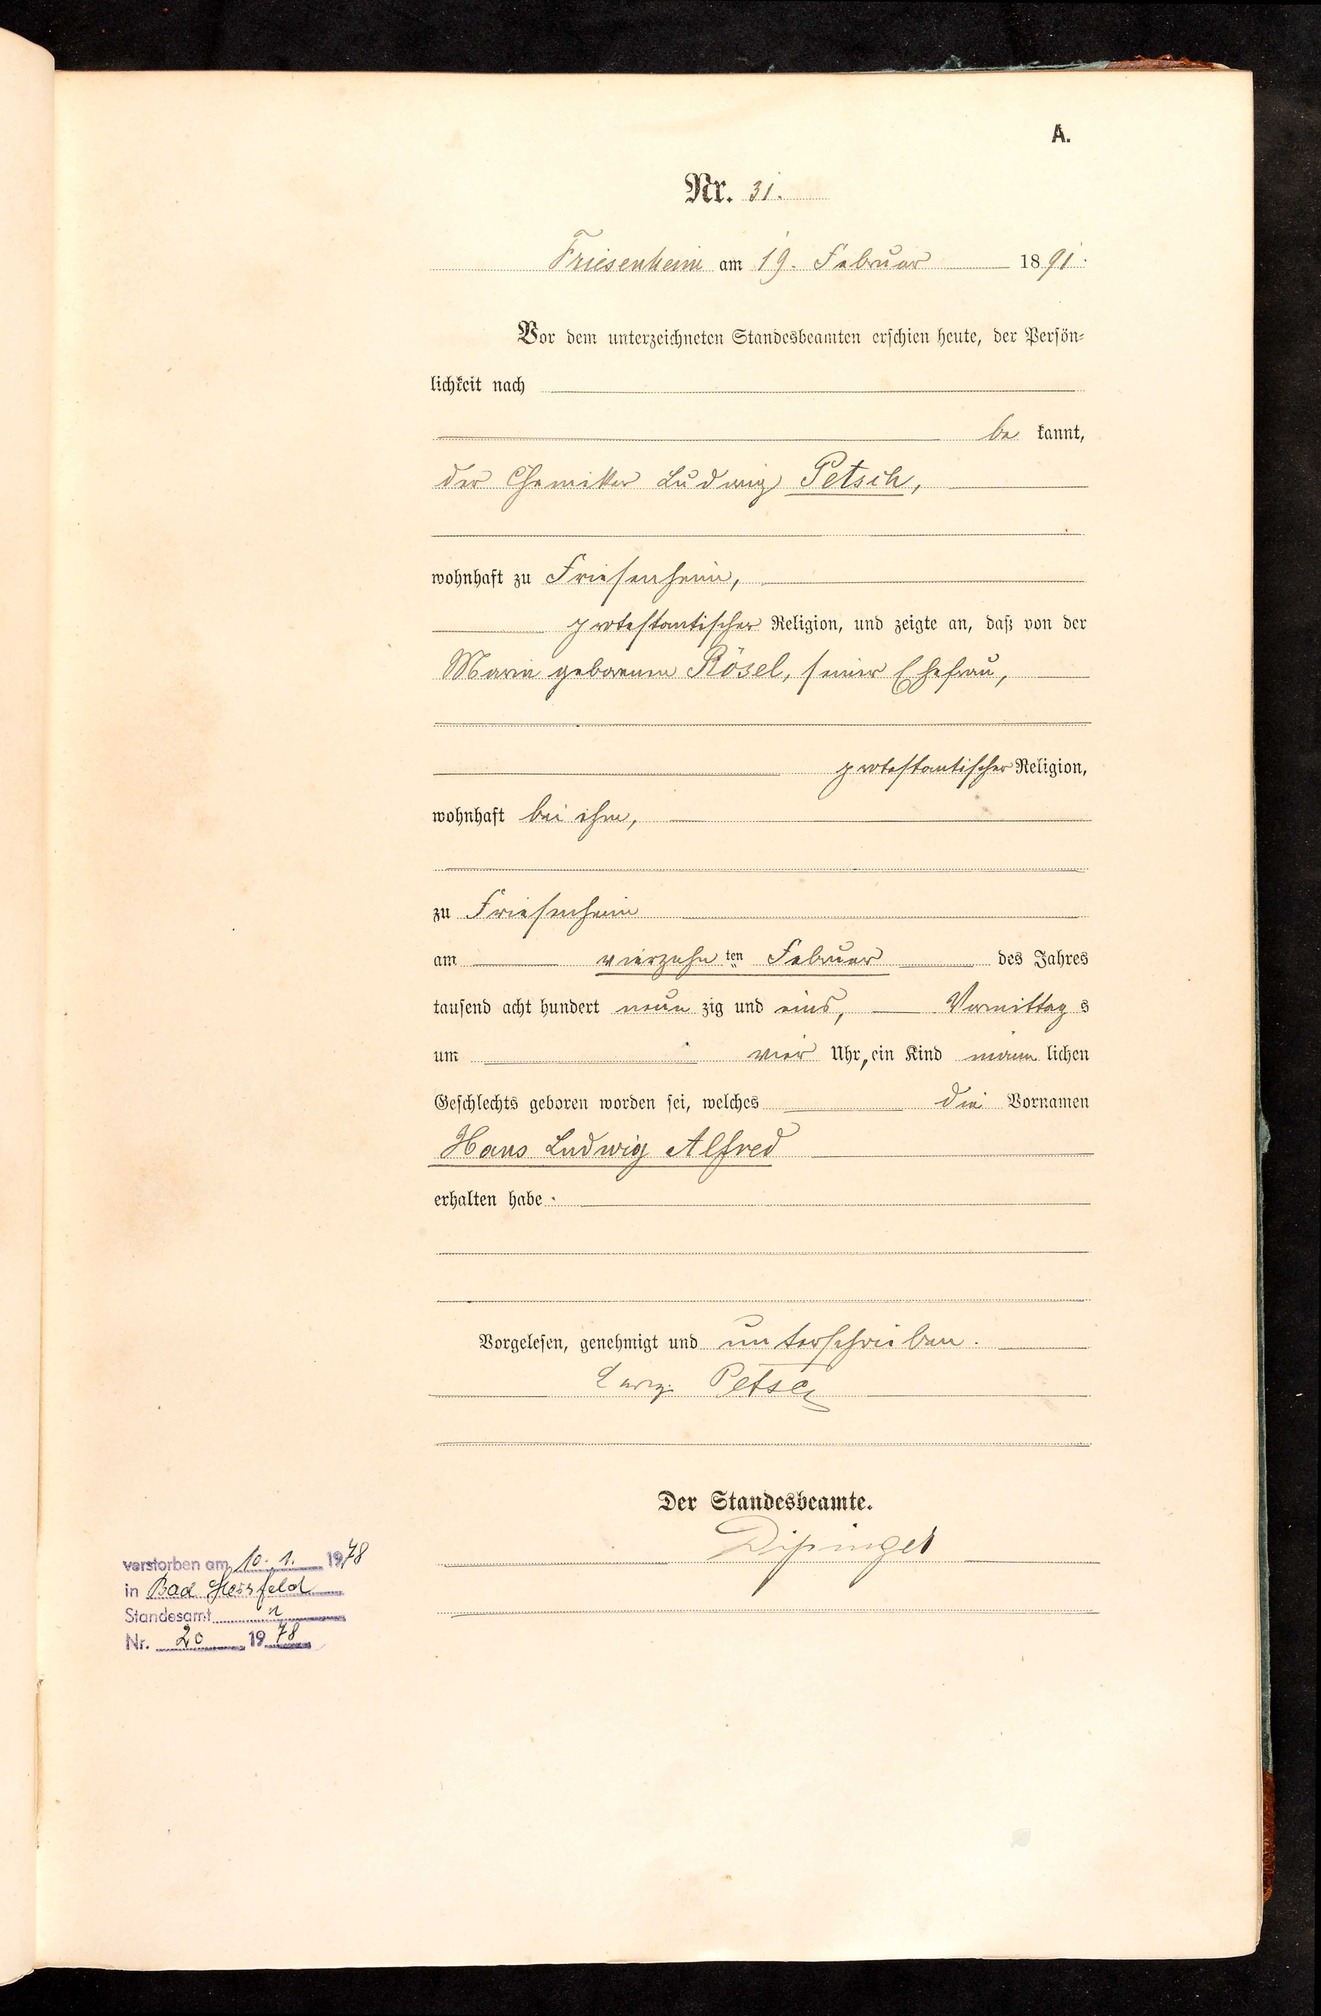 A.
Nr. 31.
Friesenheim am 19. Februar 1891.
Vor dem unterzeichneten Standesbeamten erschien heute, der Persön-
lichkeit nach
be kannt,
der Chemiker Ludwig Petsch,
wohnhaft zu Friesenheim,
protestantischer Religion, und zeigte an, daß von der
Marie geborenen Rösel, seiner Ehefrau,
protestantischer Religion,
wohnhaft bei ihm,
zu Friesenheim
am vierzehnten Februar des Jahres
tausend acht hundert neun zig und eins, Vormittag s
um vier Uhr, ein Kind männ lichen
Geschlechts geboren worden sei, welches die Vornamen
Hans Ludwig Alfred
erhalten habe.
Vorgelesen, genehmigt und unterschrieben.
Petsch
Der Standesbeamte.
verstorben am 10. 1. 1978
in Bad Hersfeld
Standesamt "
Nr. 20 1978